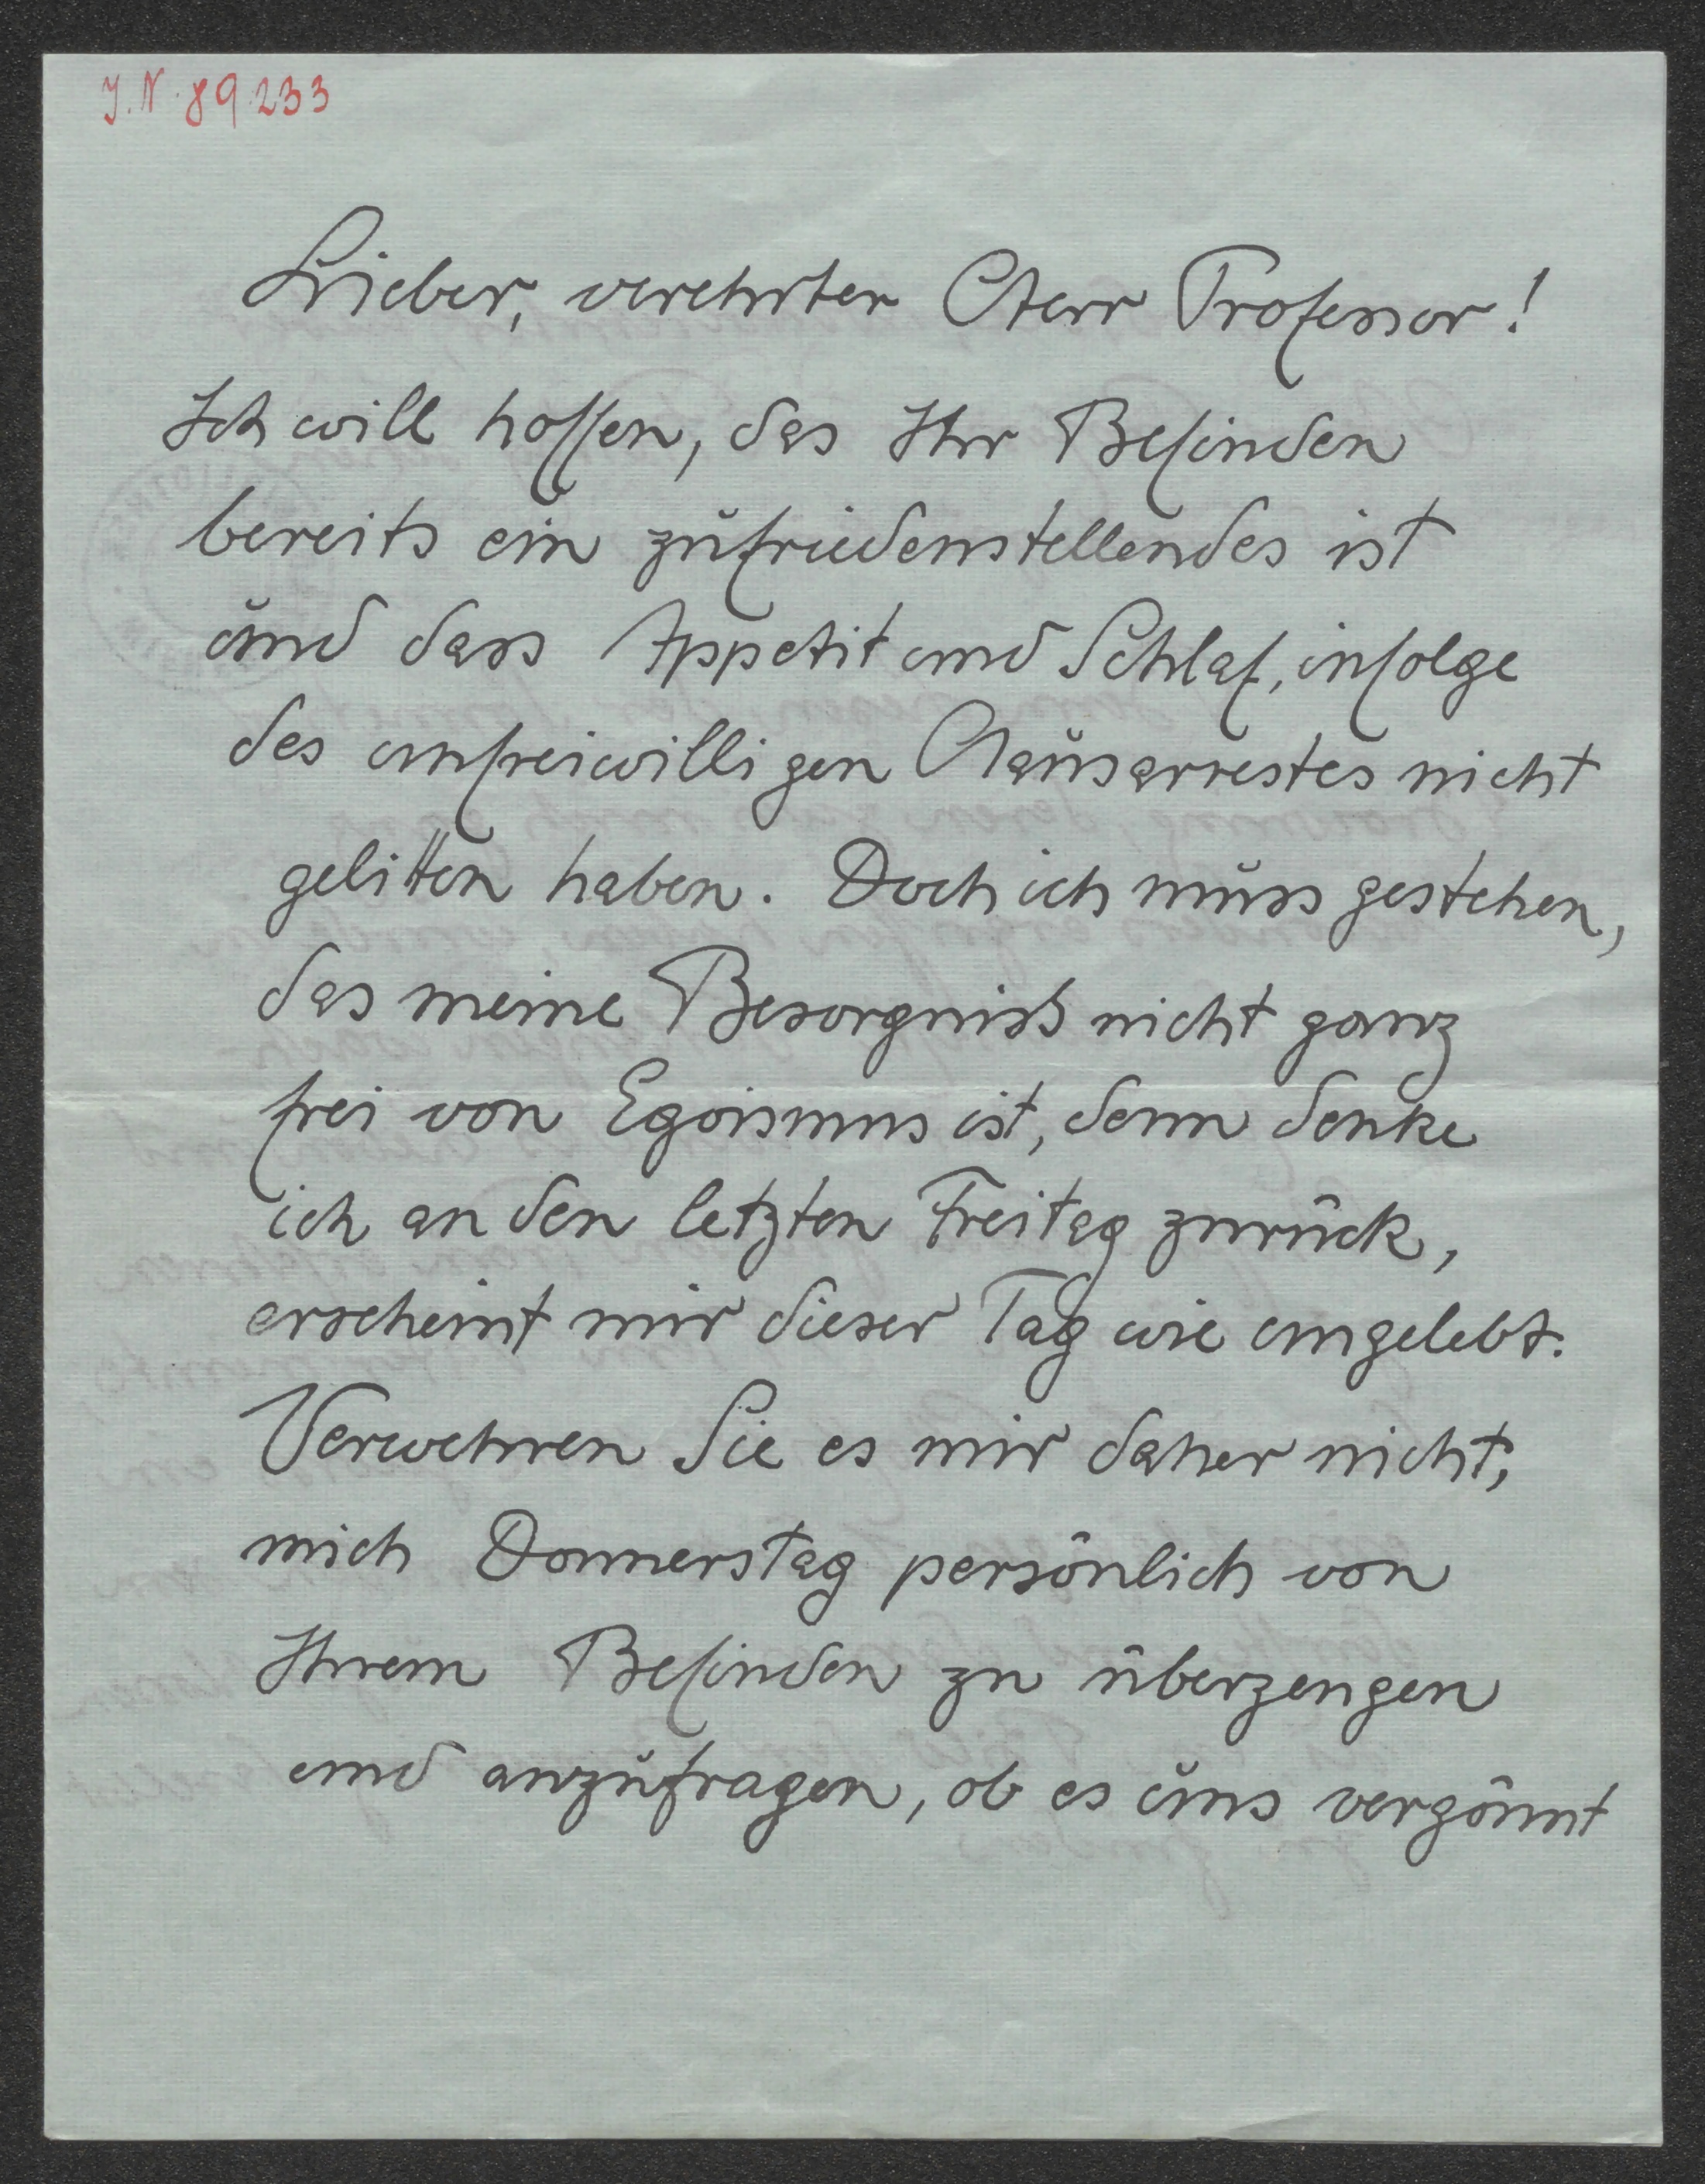 J.N. 89.233
Lieber, verehrter Herr Professor!
Ich will hoffen, das Ihr Befinden
bereits ein zufriedenstellendes ist
und dass Appetit und Schlaf, infolge
des unfreiwilligen Hausarrestes nicht
gelitten haben. Doch ich muss gestehen,
das meine Besorgniss nicht ganz
frei von Egoismus ist, denn denke
ich an den letzten Freitag zurück,
erscheint mir dieser Tag wie ungelebt.
Verwehren Sie es mir daher nicht,
mich Donnerstag persönlich von
Ihrem Befinden zu überzeugen
und anzufragen, ob es uns vergönnt